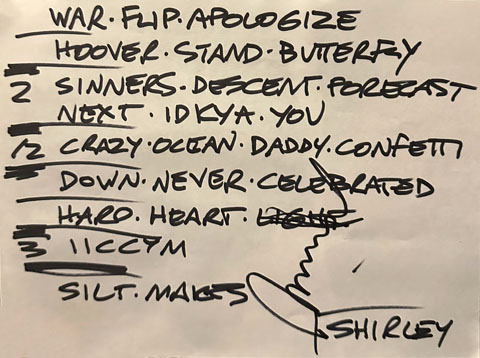 WAR · FLIP · APOLOGIZE
HOOVER · STAND · BUTTERFLY
2 SINNERS · DESCENT · FORECAST
NEXT · IDKYA · YOU
12 CRAZY · OCEAN · DADDY · CONFETTI
DOWN · NEVER · CELEBRATED
HARD · HEART · LIGHT
3 IICCYM
SILT · MAKES
SHIRLEY